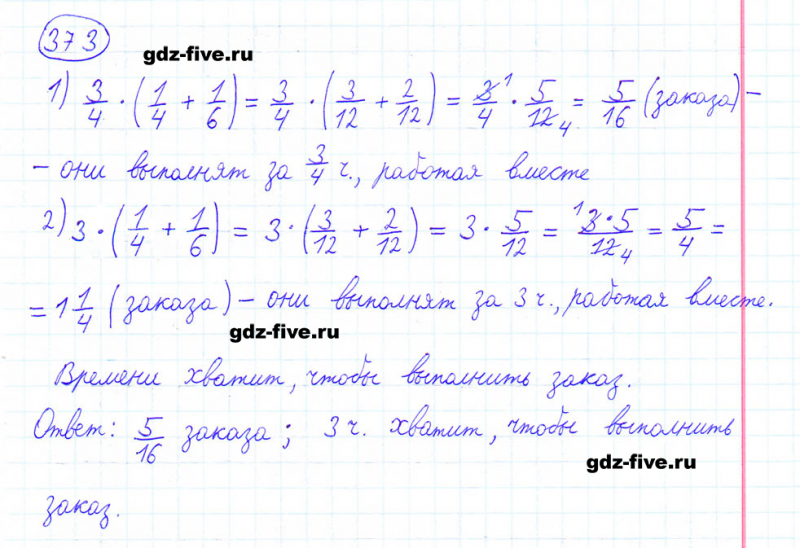 373
gdz-five.ru
1) 3/4 · (1/4 + 1/6) = 3/4 · (3/12 + 2/12) = 3̶ ¹/4 · 5/1̶2̶ ₄ = 5/16 (заказа) –
– они выполнят за 3/4 ч., работая вместе
2) 3 · (1/4 + 1/6) = 3 · (3/12 + 2/12) = 3 · 5/12 = ¹3̶ · 5/1̶2̶ ₄ = 5/4 =
= 1 1/4 (заказа) – они выполнят за 3 ч., работая вместе.
gdz-five.ru
Времени хватит, чтобы выполнить заказ.
Ответ: 5/16 заказа; 3 ч. хватит, чтобы выполнить
gdz-five.ru
заказ.